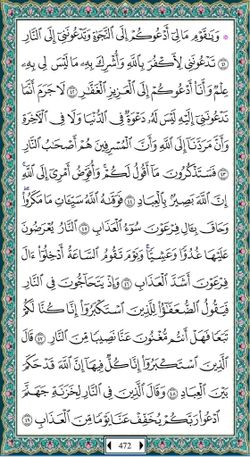 ۞ وَيَٰقَوْمِ مَا لِىٓ أَدْعُوكُمْ إِلَى ٱلنَّجَوٰةِ وَتَدْعُونَنِىٓ إِلَى ٱلنَّارِ
٤١ تَدْعُونَنِى لِأَكْفُرَ بِٱللَّهِ وَأُشْرِكَ بِهِۦ مَا لَيْسَ لِى بِهِۦ
عِلْمٌ وَأَنَا۠ أَدْعُوكُمْ إِلَى ٱلْعَزِيزِ ٱلْغَفَّٰرِ ٤٢ لَا جَرَمَ أَنَّمَا
تَدْعُونَنِىٓ إِلَيْهِ لَيْسَ لَهُۥ دَعْوَةٌ فِى ٱلدُّنْيَا وَلَا فِى ٱلْءَاخِرَةِ
وَأَنَّ مَرَدَّنَآ إِلَى ٱللَّهِ وَأَنَّ ٱلْمُسْرِفِينَ هُمْ أَصْحَٰبُ ٱلنَّارِ
٤٣ فَسَتَذْكُرُونَ مَآ أَقُولُ لَكُمْ وَأُفَوِّضُ أَمْرِىٓ إِلَى ٱللَّهِ
إِنَّ ٱللَّهَ بَصِيرٌۢ بِٱلْعِبَادِ ٤٤ فَوَقَىٰهُ ٱللَّهُ سَيِّـَٔاتِ مَا مَكَرُوا۟
وَحَاقَ بِـَٔالِ فِرْعَوْنَ سُوٓءُ ٱلْعَذَابِ ٤٥ ٱلنَّارُ يُعْرَضُونَ
عَلَيْهَا غُدُوًّا وَعَشِيًّا وَيَوْمَ تَقُومُ ٱلسَّاعَةُ أَدْخِلُوٓا۟ ءَالَ
فِرْعَوْنَ أَشَدَّ ٱلْعَذَابِ ٤٦ وَإِذْ يَتَحَآجُّونَ فِى ٱلنَّارِ
فَيَقُولُ ٱلضُّعَفَٰٓؤُا۟ لِلَّذِينَ ٱسْتَكْبَرُوٓا۟ إِنَّا كُنَّا لَكُمْ
تَبَعًا فَهَلْ أَنتُم مُّغْنُونَ عَنَّا نَصِيبًا مِّنَ ٱلنَّارِ ٤٧ قَالَ
ٱلَّذِينَ ٱسْتَكْبَرُوٓا۟ إِنَّا كُلٌّ فِيهَآ إِنَّ ٱللَّهَ قَدْ حَكَمَ
بَيْنَ ٱلْعِبَادِ ٤٨ وَقَالَ ٱلَّذِينَ فِى ٱلنَّارِ لِخَزَنَةِ جَهَنَّمَ
ٱدْعُوا۟ رَبَّكُمْ يُخَفِّفْ عَنَّا يَوْمًا مِّنَ ٱلْعَذَابِ ٤٩
472